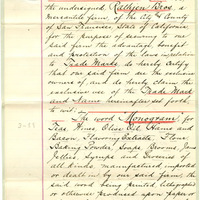 the undersigned Rathjen Bros. a
mercantile firm, of the City & County
of San Francisco, State of California
for the purpose of securing to our
said firm the advantage, benefit
and protection of the laws in relation
to Trade Marks, do hereby certify
that our said firm are the exclusive
owners of, and do hereby claim the
exclusive use of the Trade Mark
and Name hereinafter set forth
to wit.
The word Monogram for
Teas, Wine, Olive Oil, Hams and
Bacon, Flavoring Extracts, Flour
Baking Powder, Soaps, Brooms, Jams
Jellies, Syrups and Groceries of
all kinds, manufactured, imported
or dealt in by our said firm, the
said word being printed, lithographed
or otherwise produced upon paper or